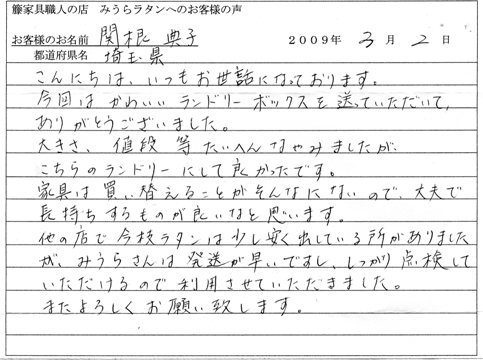 籐家具職人の店　みうらラタンへのお客様の声
お客様のお名前　関根 典子　２００９年 3 月 2 日
都道府県名　埼玉県
こんにちは、いつもお世話になっております。
今回は かわいい ランドリー ボックスを 送っていただいて、
ありがとうございました。
大きさ、値段 等 たいへん なやみましたが、
こちらのランドリーにして 良かったです。
家具は 買い替えることが そんなにないので、大丈夫で
長持ちするものが 良いなと 思います。
他の店で 今枝ラタンは 少し 安く 出している所がありました
が、みうらさんは 発送が早いですし、しっかり 点検して
いただけるので 利用させていただきました。
またよろしく お願い致します。